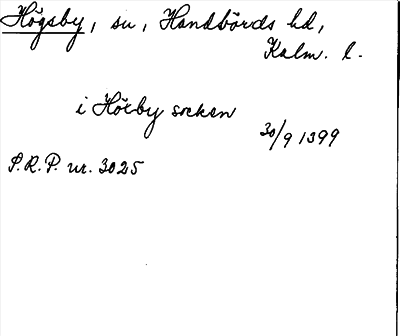 Högsby, sn, Handbörds hd,
Kalm. l.
i Höxby socken
30/9 1399
S.R.P. nr. 3025